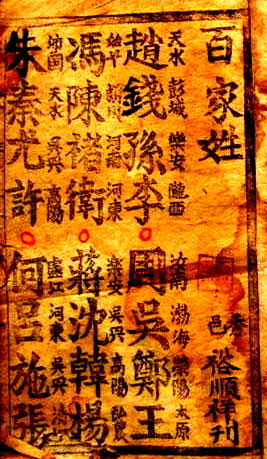 百家姓
裕順祥刊
天水 彭城 樂安 隴西 汝南 渤海 滎陽 太原
趙錢孫李 周吳鄭王
始平 河南 河東 樂安 吳興
馮陳褚衛 蔣沈韓楊
沛國 天水 吳興 高陽 廬江 河東 吳興
朱秦尤許 何呂施張